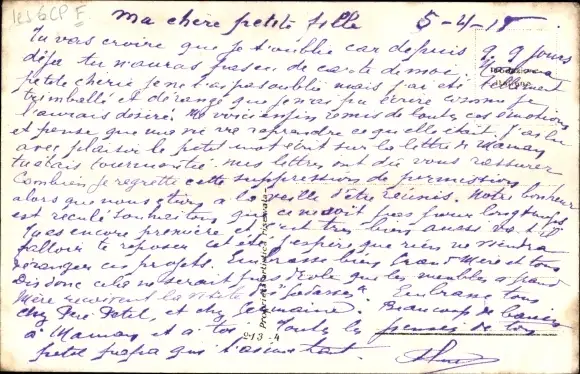 les GCP F
Ma chère petite fille 5-4-18
Tu vas croire que je t'oublie car depuis q.q. jours
déjà tu n'auras pas eu de carte de moi.
petite chérie je ne t'ai pas oublié mais j'ai été tellement
trimballé et dérangé que je n'ai pu écrire comme je
l'aurais désiré. Me voici enfin remis de toutes ces émotions
et pense que ma vie va reprendre ce qu'elle était. J'ai lu
avec plaisir le petit mot écrit sur la lettre de Maman
tu étais tourmentée mes lettres ont dû vous rassurer
Combien je regrette cette suppression de permission
alors que nous étions à la veille d'être réunis. Notre bonheur
est reculé souhaitons que ce ne soit pas pour longtemps
Tu as encore première et c'est très bien aussi va-t-il
falloir te reposer cet été j'espère que rien ne viendra
déranger ces projets. Embrasse bien Grand Mère et tous
Dis donc cela ne serait pas drôle que les meubles à Grand
Mère reçoivent la visite des "Godasses". Embrasse tous
chez Père Petit, et chez Germaine. Beaucoup de baisers
à Maman et à toi. Toutes les pensées de ton
petit papa qui t'aime tant.
Proprietà artistica riservata
213-4